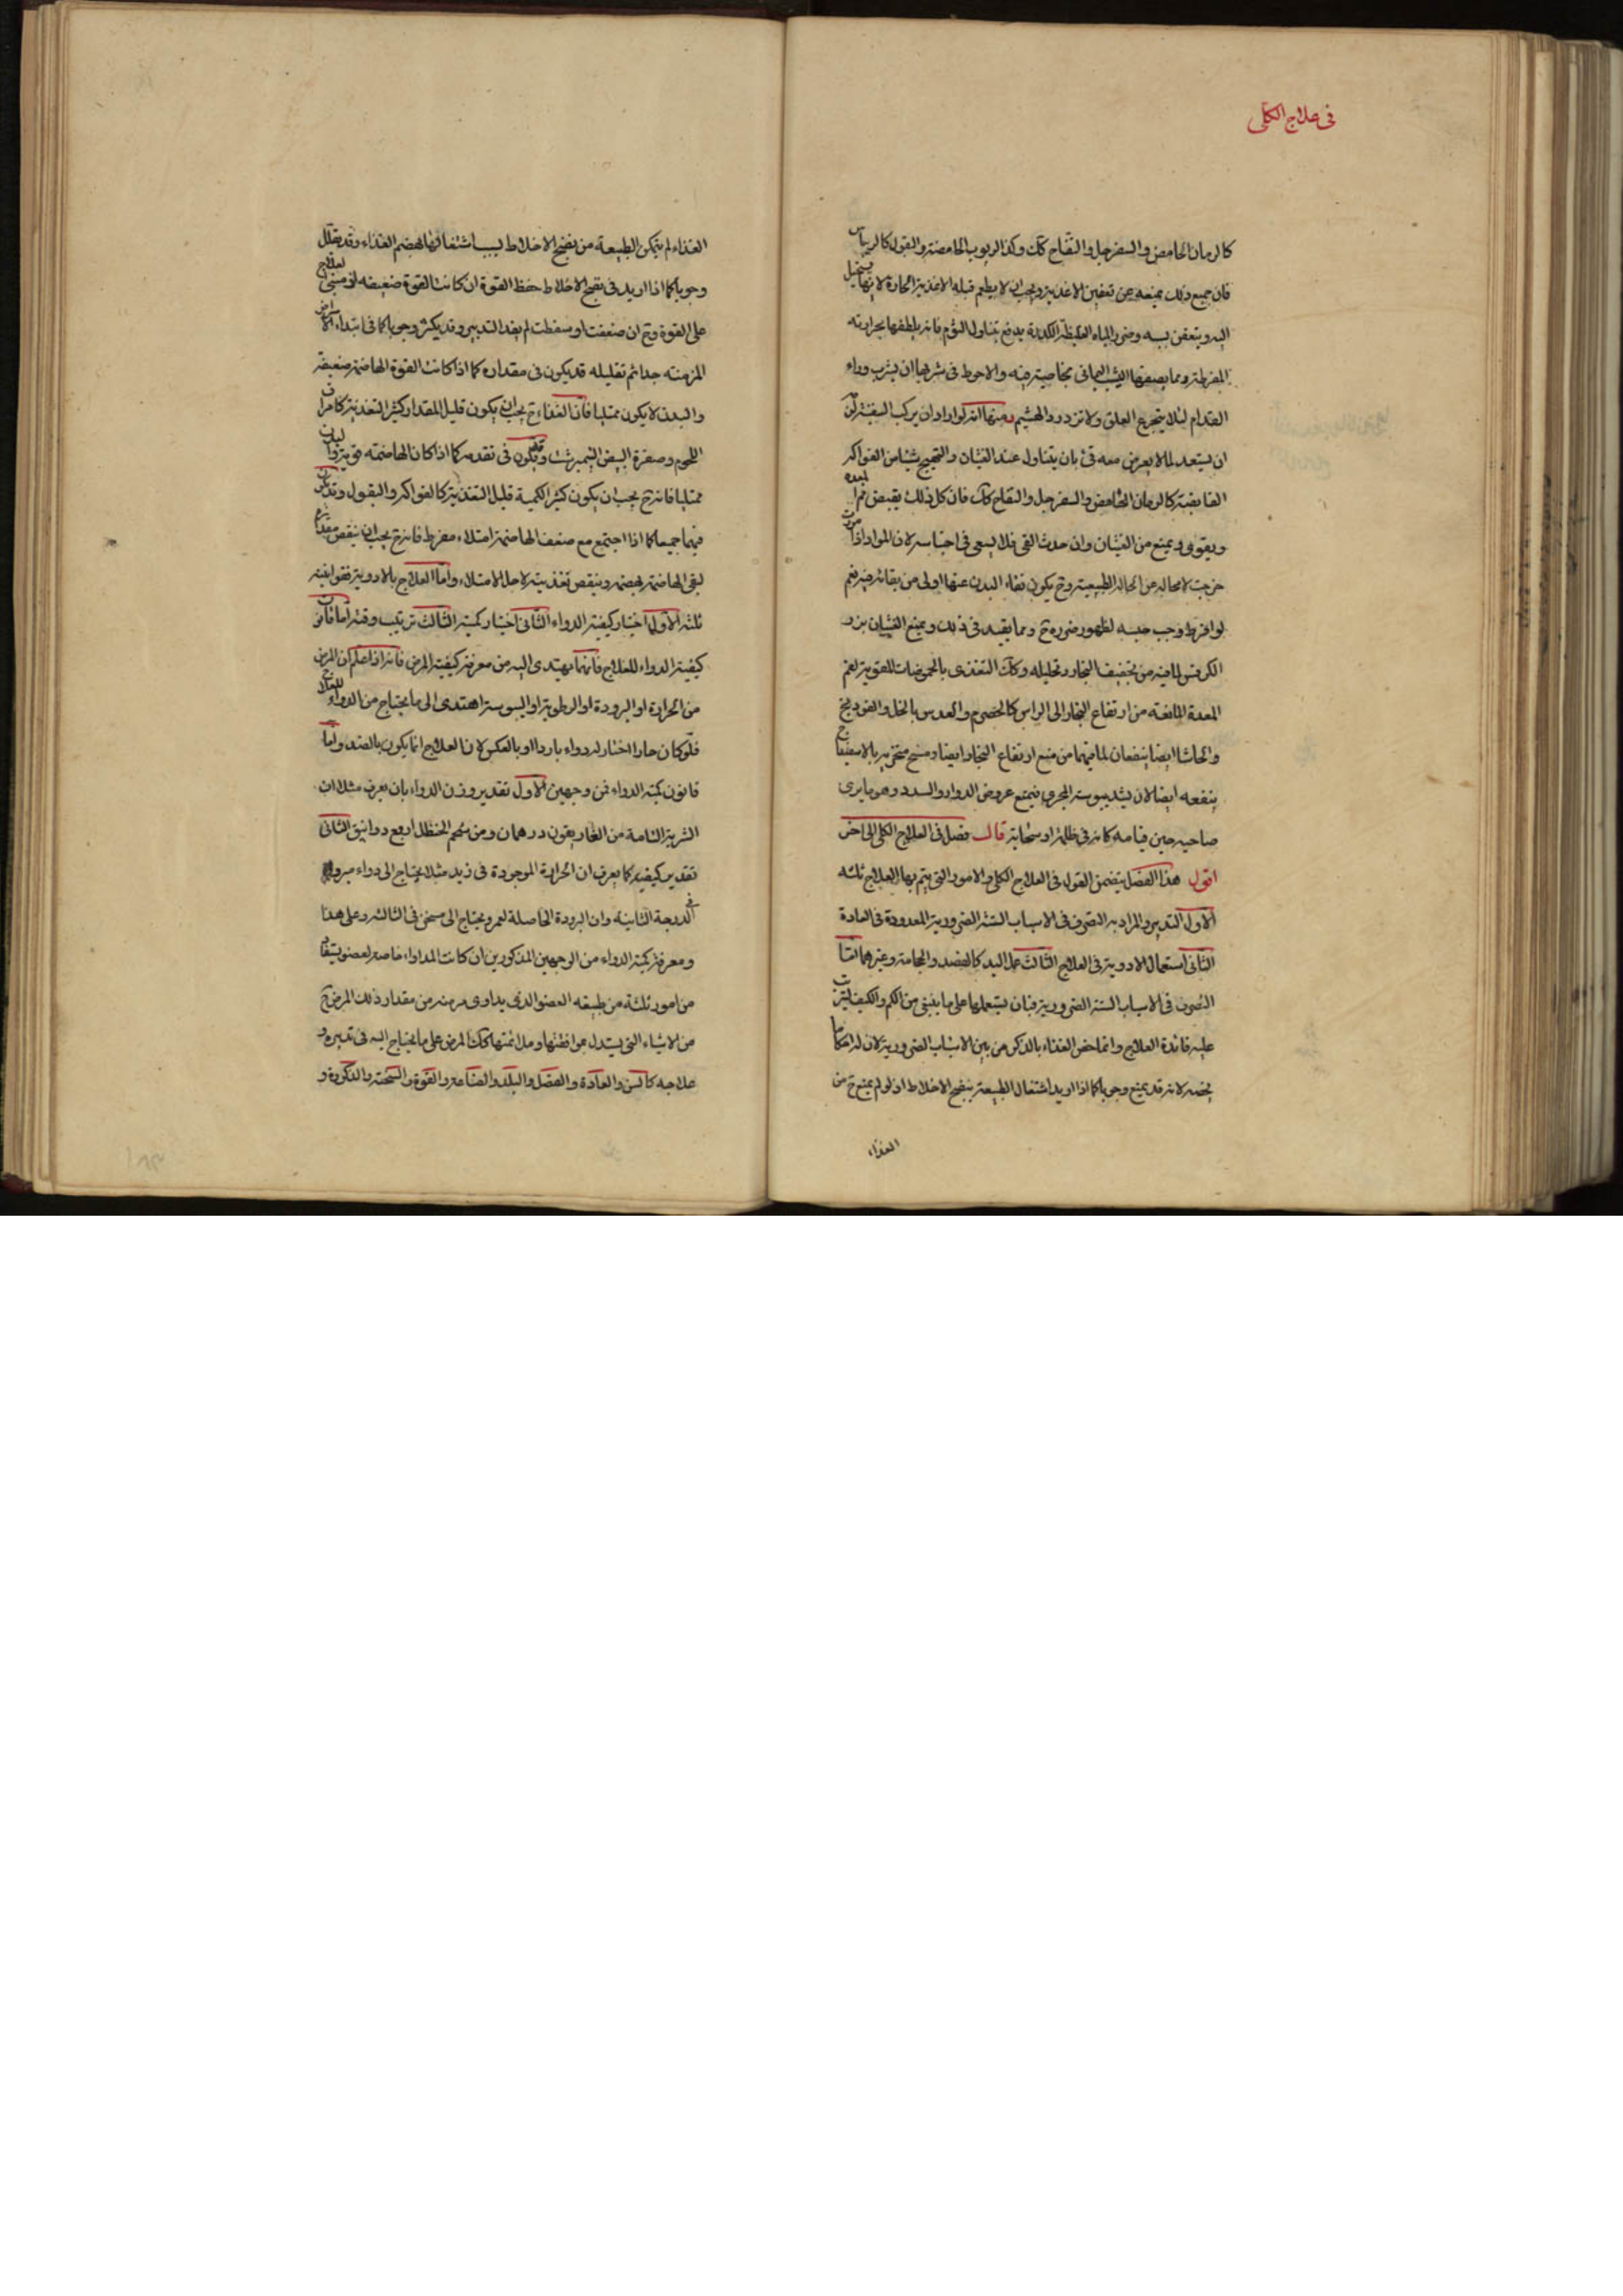 فى علاج الكلى
كالرمان الحامض والسفرجل والتفاح كك وكذا الربوب الحامضة والبقول كالريباس
فان جميع ذلك يمنعه عن تعفين الاغذية ويجب ان لا يطعم قبله الاغذية الحارة لانها يستحيل
اليه ويتعفن بسببه وضرر المياه الغليظة الكدرة يدفع بتناول الثوم فانه يلطفها بحرارته
المفرطة ومما يصفيها الشب اليمانى بخاصية فيه والاحوط فى شربها ان يشرب وراء
الفدام لئلا يتجرع العلق ولا تزدرد الهشيم ومنها انه لو اراد ان يركب السفينة
ان يستعد لما لا يعرض معه قئ بان يتناول عند الغثيان والتهيج شيئا من الفواكه
القابضة كالرمان الحامض والسفرجل والتفاح كك فان كل ذلك يقبض فم المعدة
ويقوى ويمنع من الغثيان وان حدث القى فلا يسعى فى احتباسه لان المواد اذا
خرجت لا محالة عن الحالة الطبيعية وح يكون نقاء البدن عنها اولى من بقائه فيه نعم
لو افرط وجب حبسه لظهور ضرره ح ومما يفيد فى ذلك ويمنع الغثيان بزر
الكرفس لما فيه من تجفيف البخار وتحليله وكك التغذى بالحموضات المقوية لفم
المعدة المانعة من ارتفاع البخار الى الراس كالحصرم والعدس بالخل والفودنج
والحاشا ايضا ينفعان لما فيهما من منع ارتفاع البخار ايضا ومسح منخريه بالاسفيداج
ينفعه ايضا لان يشد يبوسته المجرى فيمتنع عروض الدوار والسدد وهو ما يرى
صاحبه حين قيامه كانه فى ظلمة او سحابة قال فصل فى العلاج الكلى الى اخره
اقول هذا الفصل يتضمن القول فى العلاج الكلى والامور التى يتم بها العلاج ثلثه
الاول التدبير والمراد به التصرف فى الاسباب الستة الضرورية المعدودة فى العادة
الثانى استعمال الادوية فى العلاج الثالث عمل اليد كالفصد والحجامة وغيرهما اما
التصرف فى الاسباب الستة الضرورية فبان يستعملها على ما ينبغى من الكم والكيف ليترتب
عليه فائدة العلاج وانما خص الغذاء بالذكر من بين الاسباب الضرورية لان له احكاما
يخصه لانه قد يمنع وجوبا كما اذا اريد اشتغال الطبيعة بنضج الاخلاط اذ لو لم يمنع ح من
الغذاء
الغذاء لم يتمكن الطبيعة من نضج الاخلاط بسبب اشتغالها بهضم الغذاء وقد يقلل
وجوبا كما اذا اريد فى نضج الاخلاط حفظ القوة ان كانت القوة ضعيفه اذ مبنى العلاج
على القوة وح ان ضعفت او سقطت لم يفد التدبير وقد يكثر وجوبا كما فى ابتداء الامراض
المزمنه جدا ثم تقليله قد يكون فى مقداره كما اذا كانت القوة الهاضمة ضعيفة
والبدن لا يكون ممتليا فان الغذاء ح يجب ان يكون قليل المقدار كثير التغذية كامراق
اللحوم وصفرة البيض النيمبرشت وقد يكون فى تغذيته كما اذا كان الهاضمه قوية والبدن
ممتليا فانه ح يجب ان يكون كثير الكمية قليل التغذية كالفواكه والبقول وقد يكون
فيهما جميعا كما اذا اجتمع مع ضعف الهاضمة امتلاء مفرط فانه ح يجب ان ينقص مقداره
ليقى الهاضمة بهضمه وينقص تغذيته لاجل الامتلاء واما العلاج بالادوية فقوانينه
ثلثه الاول اختيار كيفية الدواء الثانى اختيار كميته الثالث ترتيب وقته اما قانون
كيفية الدواء للعلاج فانما يهتدى اليه من معرفة كيفية المرض فانه اذا علم ان المرض
من الحرارة او البرودة او الرطوبة او اليبوسة اهتدى الى ما يحتاج من الدواء للعلاج
فلو كان حارا اختار له دواء باردا او بالعكس لان العلاج انما يكون بالضد واما
قانون كمية الدواء فمن وجهين الاول تقدير وزن الدواء بان يعرف مثلا ان
الشربة التامة من الغاريقون درهمان ومن شحم الحنظل اربع دوانيق الثانى
تقدير كيفيته كما يعرف ان الحرارة الموجودة فى زيد مثلا يحتاج الى دواء مبرد فى
الدرجة الثانية وان البرودة الحاصلة لعمرو يحتاج الى مسخن فى الثالثه وعلى هذا
ومعرفة كمية الدواء من الوجهين المذكورين ان كانت المداواة خاصة لعضو يستفاد
من امور ثلثة من طبيعه العضو الذى يداوى مرضه من مقدار ذلك المرض ح
من الاشياء التى يستدل بموافقتها وملائمتها كك المرض على ما يحتاج اليه فى تدبيره و
علاجه كالسن والعادة والفصل والبلد والصناعة والقوة والسحنة والذكورة و